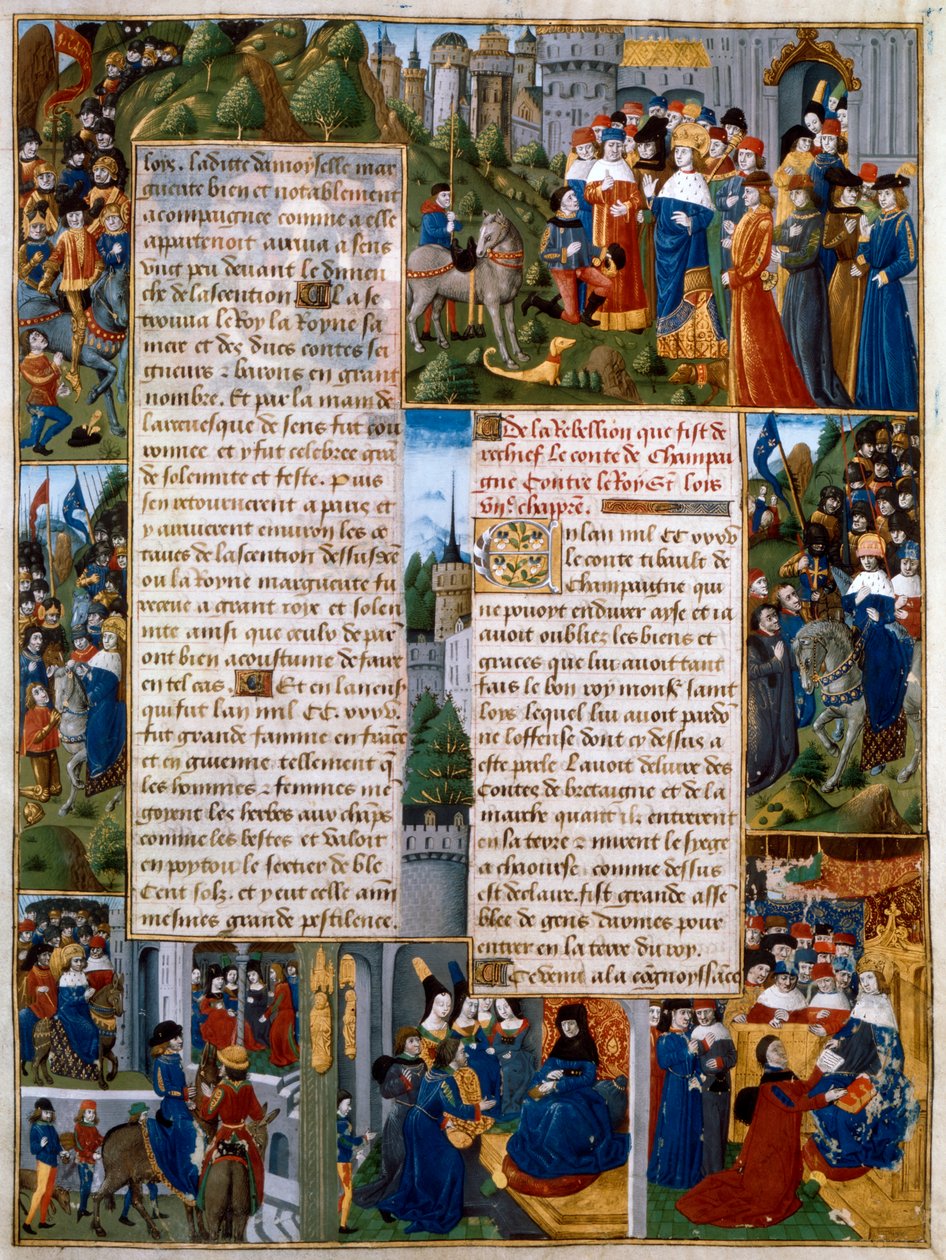 loix. Ladicte damoyselle mar
guerite bien et notablement
acompaignee comme a elle
appartenoit arriva a sens
ung peu devant le dimen
che de lascention. Il a se
trouva le Roy la Royne sa
mere et des ducs contes sei
gneurs & barons en grant
nombre. Et par la main de
larcevesque de sens fut cou
ronnee et y fut celebree grãt
de solennite et feste. Puis
sen retournerent a paris et
y arriverent environ les oc
taves de lascention dessusd
ou la Royne marguerite fu
receue a grant ioye et solen
nite ainsi que ceulx de par
ont bien acoustume de faire
en tel cas. Et en lan ens
qui fut lan mil CC. xxxv.
fut grande famine en frãce
et en guienne tellement q̃
les hommes & femmes me
goient les herbes aux chãps
comme les bestes et valoit
en poytou le sextier de ble
Cent solz. et y eut celle ann
mesmes grande pestilence.
De la Rebellion que fist de
rechief le conte de Champai
gne Contre le Roy St lois
vijc. chappr̃e.
En lan mil CC xxxv
le conte tibault de
Champaigne qui
ne povoyt endurer ayse et ia
avoit oubliez les biens et
graces que luy avoit tant
fais le bon roy monsr. saint
loys lequel luy avoit pardõ
ne loffense dont cy dessus a
este parle Lavoit delivre des
Contes de bretaigne et de la
marche quant ilz entrerent
en sa terre & mirent le syege
a chaourse. comme dessus
est declaire. fist grande assẽ
blee de gens darmes pour
entrer en la terre du roy.
Ce venu a la cõgnoyssãce